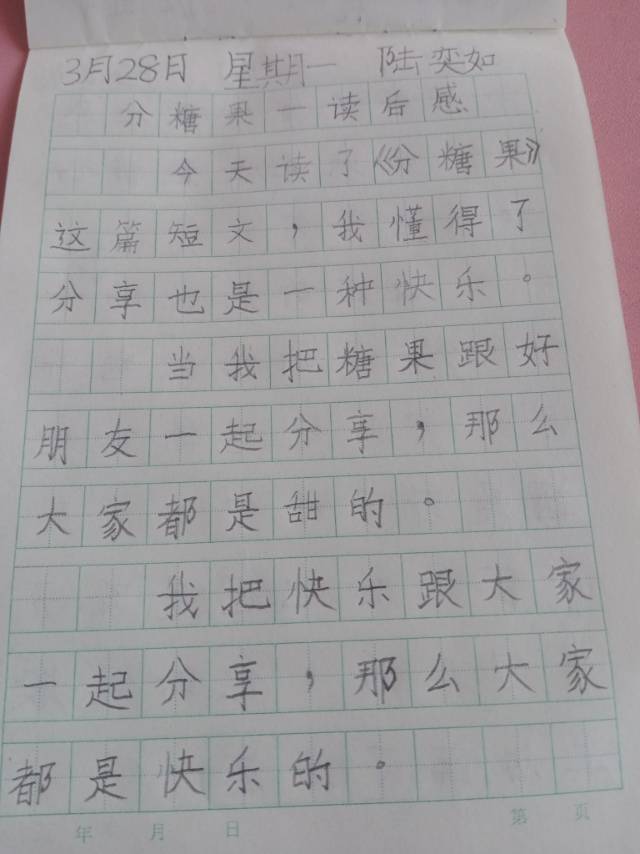 3月28日 星期一 陆奕如
分糖果一读后感
今天读了《分糖果》
这篇短文，我懂得了
分享也是一种快乐。
当我把糖果跟好
朋友一起分享，那么
大家都是甜的。
我把快乐跟大家
一起分享，那么大家
都是快乐的。
年 月 日 第 页